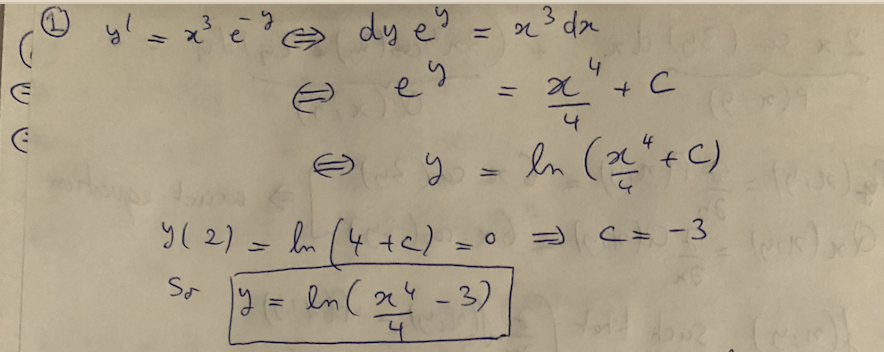 ① y' = x³ e^-y ⇔ dy e^y = x³ dx
⇔ e^y = x⁴/4 + C
⇔ y = ln (x⁴/4 + C)
y(2) = ln (4 + c) = 0 ⇒ C = -3
So y = ln( x⁴/4 - 3)